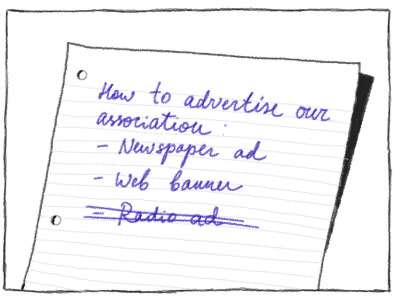 How to advertise our
association :
- Newspaper ad
- Web banner
- Radio ad